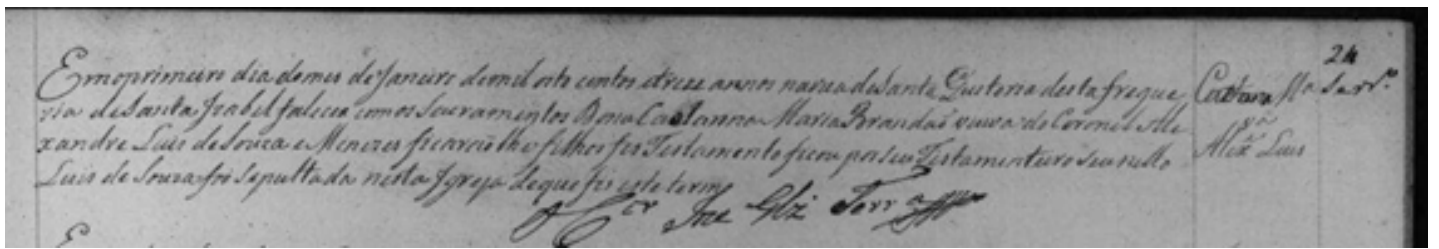 24
Em o primeiro dia do mes de Janeiro de mil oito centos e treze annos na rua de Santa Quiteria desta fregue
zia de Santa Izabel faleceo com os Sacramentos Dona Caetanna Maria Brandaõ viuva do Coronel Ale
xandre Luis de Souza e Menezes ficaraõ lhe filhos fes Testamento ficou por seu Testamenteiro seu netto
Luis de Souza foi Sepultada nesta Igreja de que fis este termo
O Cor Joze Glz Ferrª
Ma
vª
Alex Luis